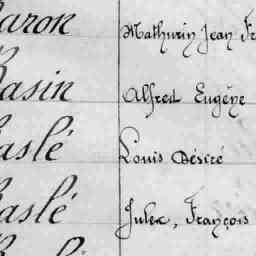 Baron Mathurin Jean Fr
Basin Alfred Eugène
Baslé Louis Désiré
Baslé Jules, François